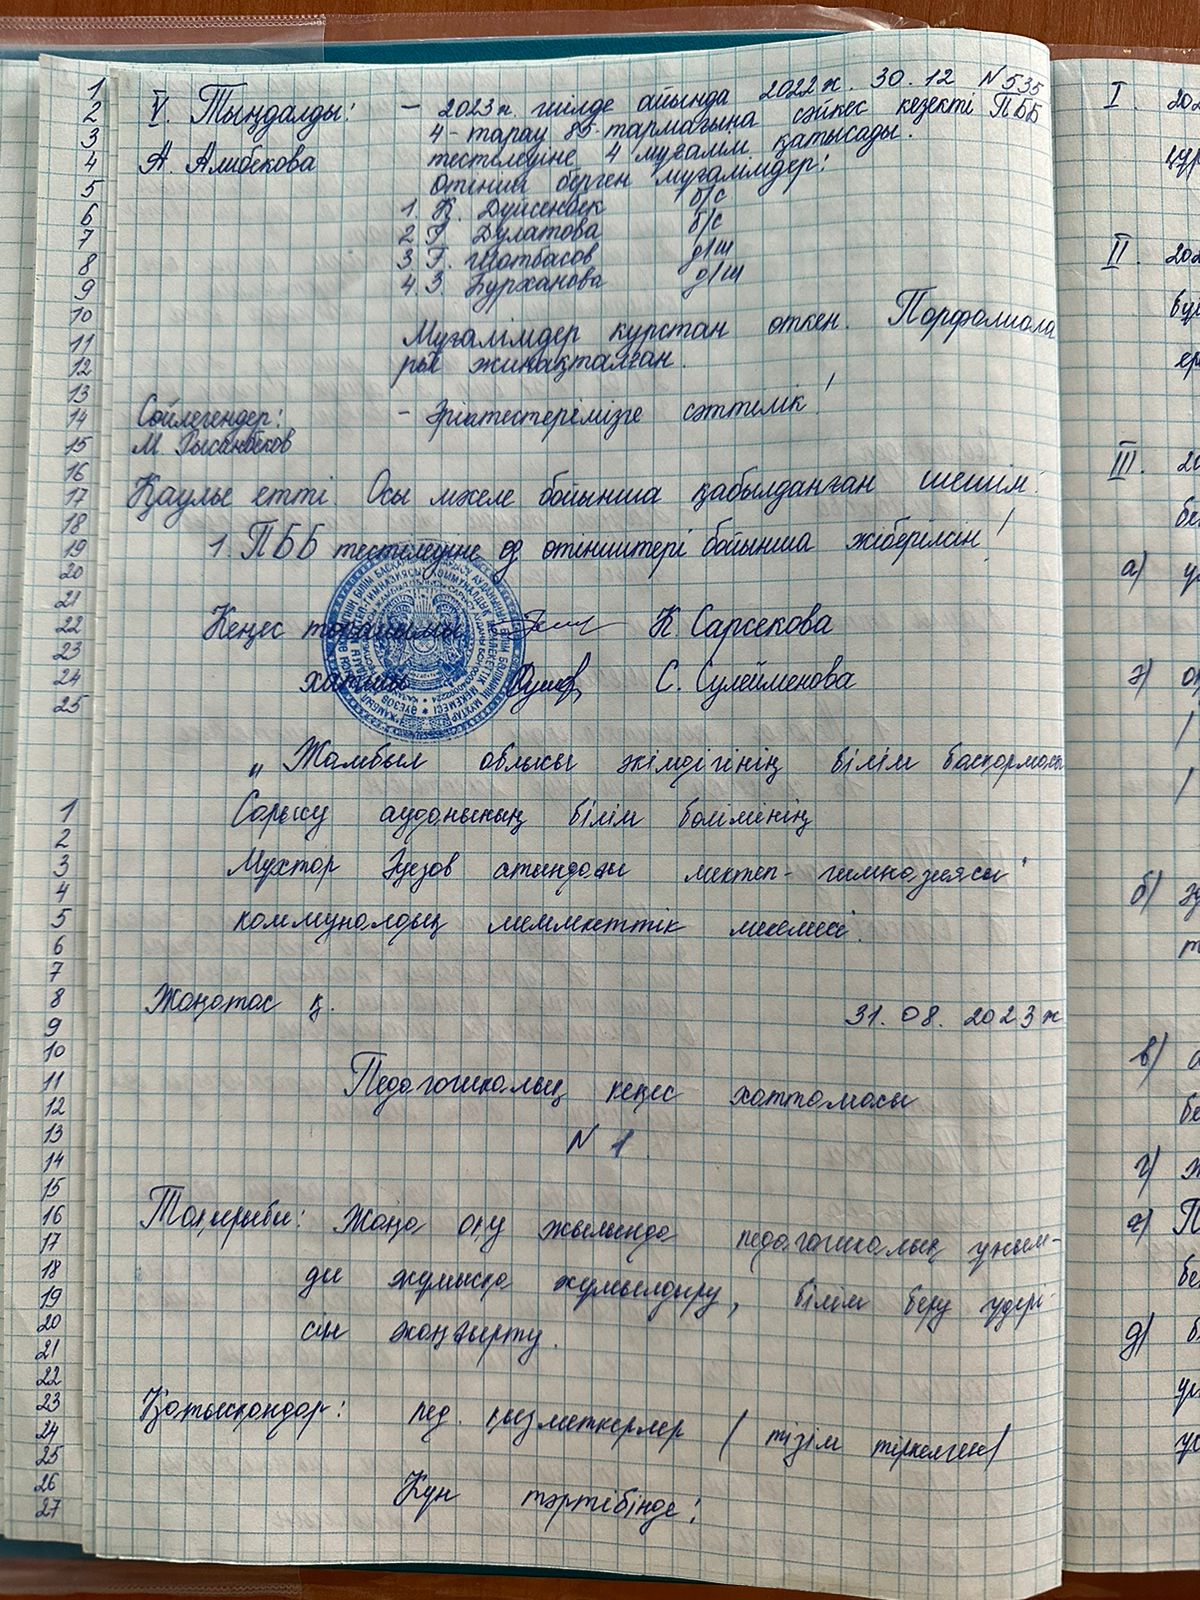 V. Тыңдалды: – 2023ж. шілде айында 2022ж. 30.12 N535
4-тарау 85-тармағына сәйкес кезекті ПББ
А. Алибекова тестілеуіне 4 мұғалім қатысады.
Өтініш берген мұғалімдер:
1. Қ. Дүйсенбек б/с
2 Г. Дулатова б/с
3 Г. Шотбасов д/ш
4. З. Бурханова д/ш
Мұғалімдер курстан өткен. Порфолиола
ры жинақталған.
Сөйлегендер: – Әріптестерімізге сәттілік!
М Рысанбеков
Қаулы етті Осы мәселе бойынша қабылданған шешім
1. ПББ тестілеуіне өз өтініштері бойынша жіберілсін!
Кеңес торайымы К. Сарсекова
хатшы С. Сулейменова
„Жамбыл облысы әкімдігінің білім басқармасы
Сарысу ауданының білім бөлімінің
Мұхтар Әуезов атындағы мектеп-гимназиясы"
коммуналдық мемлекеттік мекемесі.
Жаңатас қ. 31.08.2023ж
Педагогикалық кеңес хаттамасы
N 1
Тақырыбы: Жаңа оқу жылында педагогикалық ұжым-
ды жұмысқа жұмылдыру, білім беру үдері-
сін жаңғырту.
Қатысқандар: пед. қызметкерлер / тізім тіркелген/
Күн тәртібінде:
1
2
3
4
5
6
7
8
9
10
11
12
13
14
15
16
17
18
19
20
21
22
23
24
25
1
2
3
4
5
6
7
8
9
10
11
12
13
14
15
16
17
18
19
20
21
22
23
24
25
26
27
I.
II.
III.
а)
б)
в)
г)
д)